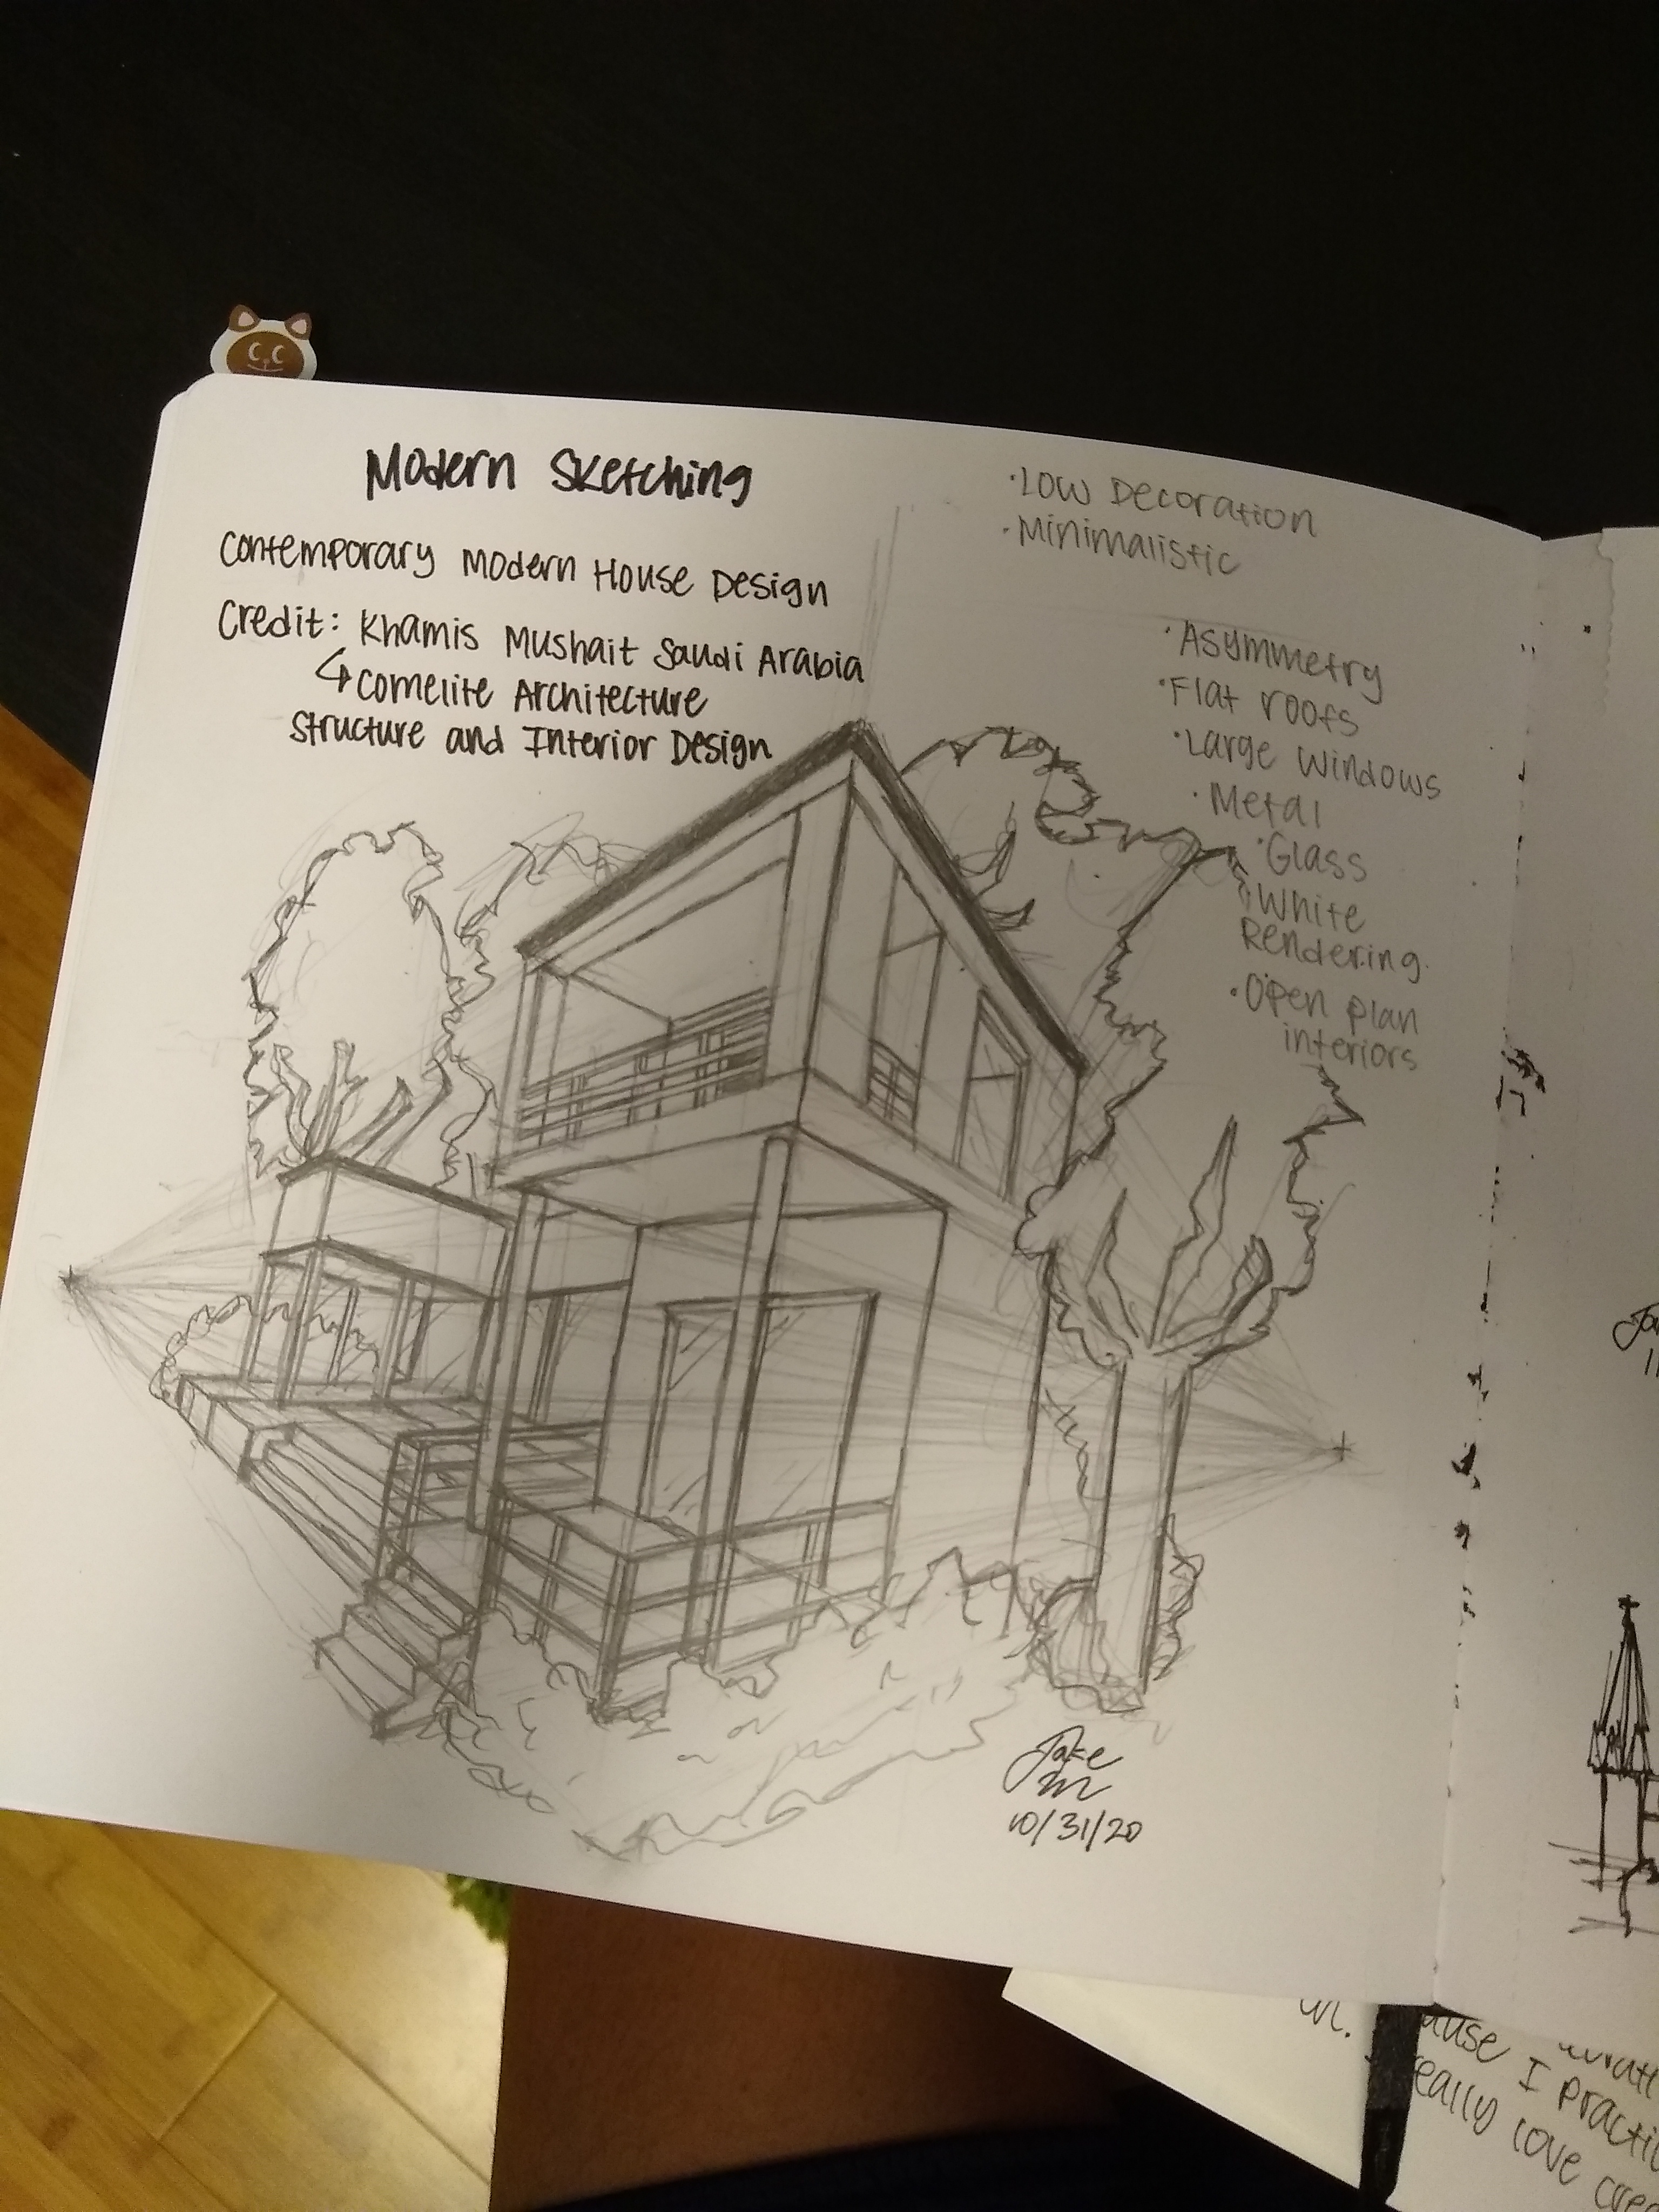 Modern Sketching
Contemporary Modern House Design
Credit: Khamis Mushait Saudi Arabia
↳ Comelite Architecture
Structure and Interior Design
·Low Decoration
·Minimalistic
·Asymmetry
·Flat roofs
·Large Windows
·Metal
·Glass
·White
Rendering.
·Open plan
interiors
Jake
10/31/20
I practi
love crea